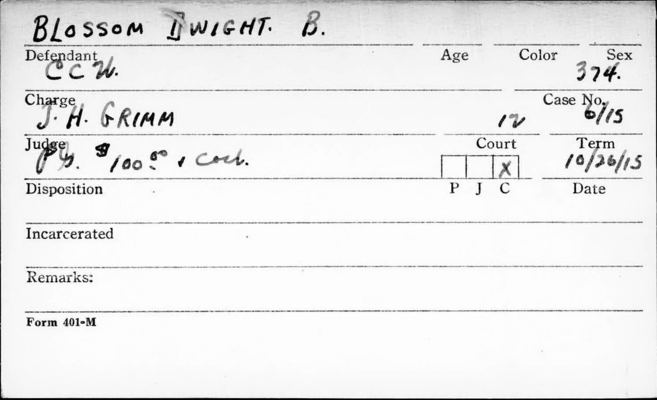 BLOSSOM DWIGHT. B.
Defendant Age Color Sex
C C W. 374.
Charge Case No.
J. H. GRIMM 12 6/15
Judge Court Term
P G. $100.00 & Cost. X 10/26/15
Disposition P J C Date
Incarcerated
Remarks:
Form 401-M